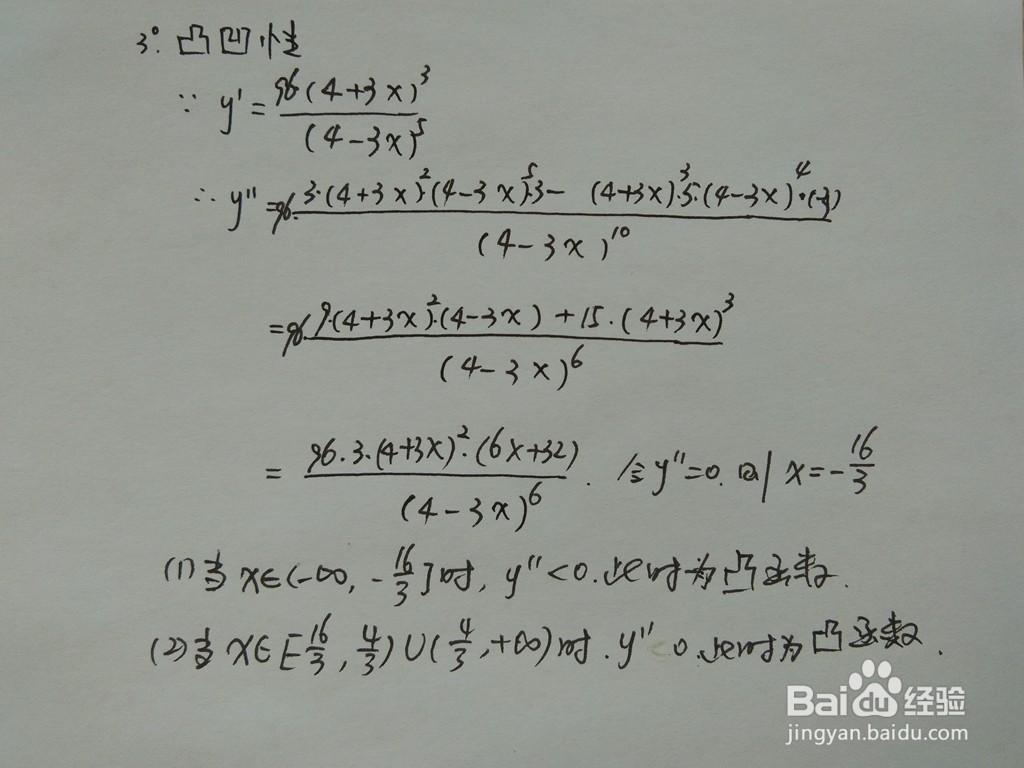 3°. 凸凹性
∵ y' = 96(4+3x)³ / (4-3x)⁵
∴ y'' = 96· 3·(4+3x)²·(4-3x)⁵·3 - (4+3x)³·5·(4-3x)⁴·(-3) / (4-3x)¹⁰
= 96· 9·(4+3x)²·(4-3x) + 15·(4+3x)³ / (4-3x)⁶
= 96·3·(4+3x)²·(6x+32) / (4-3x)⁶ . 令y''=0. 则 x=-16/3
(1)当 x∈(-∞, -16/3]时, y''<0.此时为凸函数.
(2)当 x∈[16/3, 4/3)∪(4/3,+∞)时. y'' 0.此时为凸函数.
Baidu经验
jingyan.baidu.com